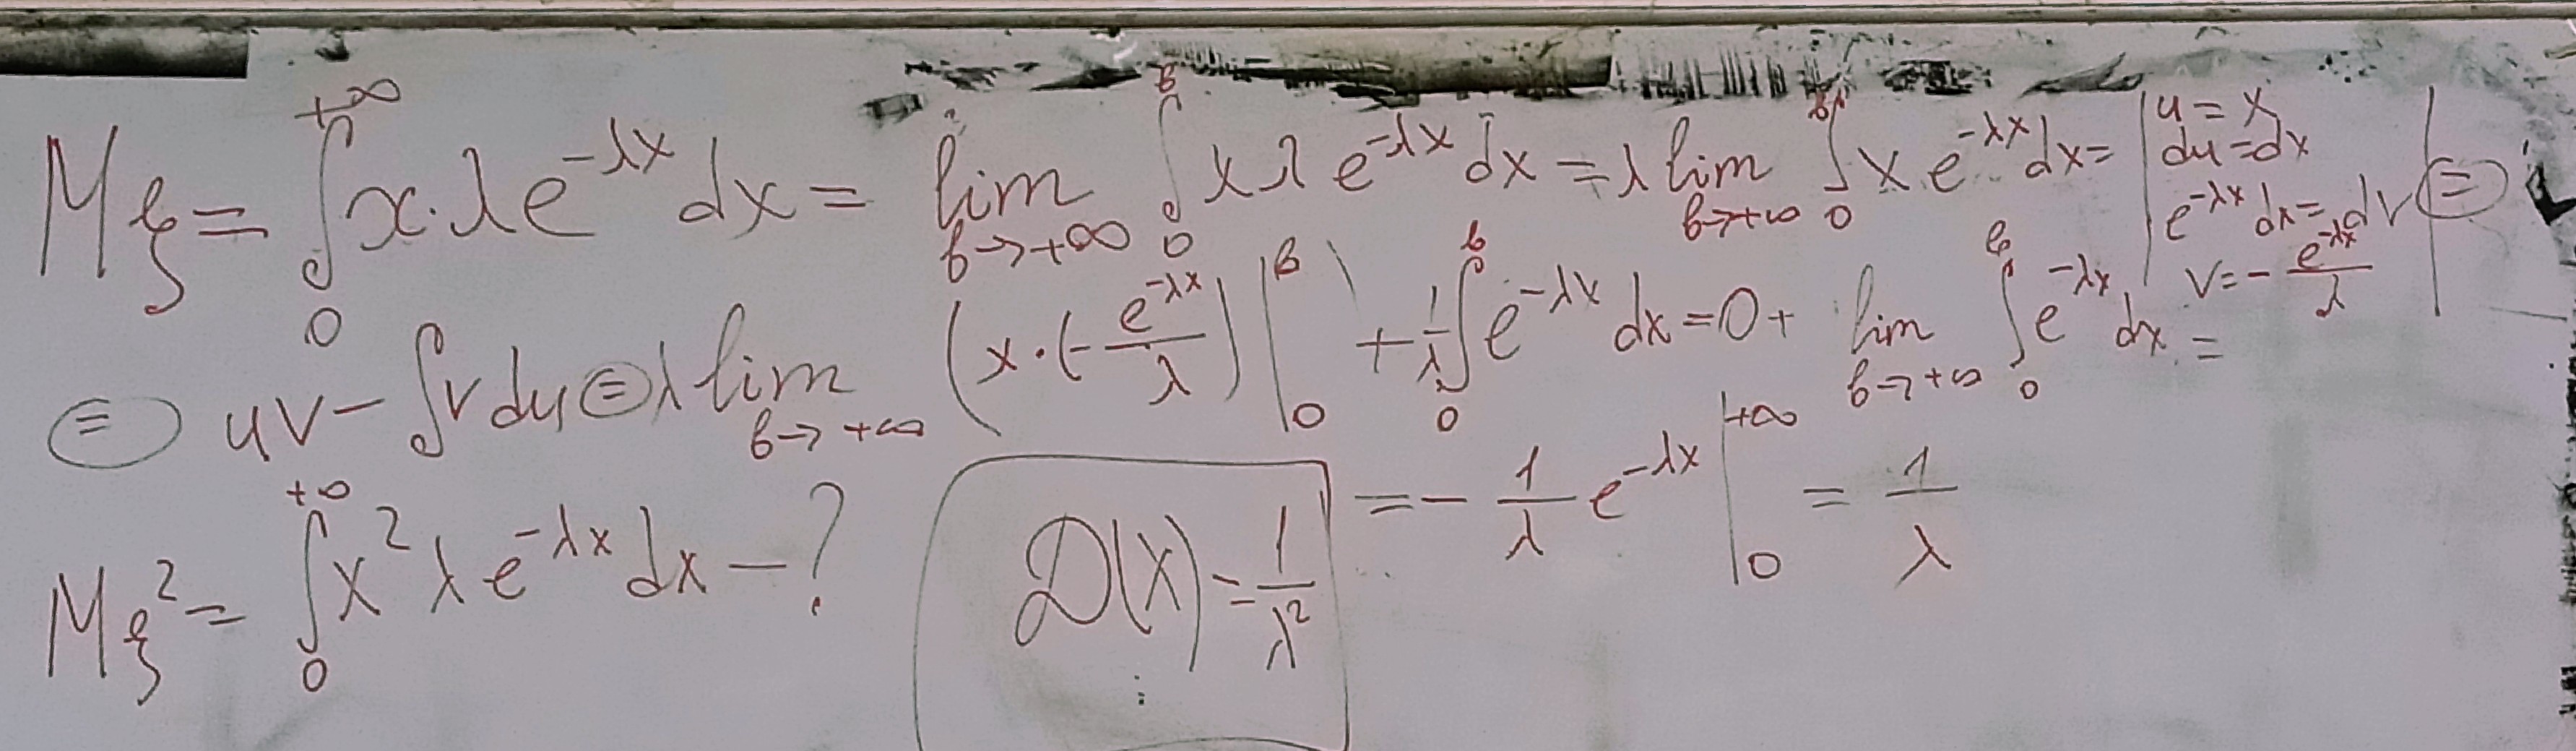 Mξ = ∫₀^{+∞} x·λe^{-λx} dx = lim_{b→+∞} ∫₀^b xλe^{-λx} dx = λ lim_{b→+∞} ∫₀^b x e^{-λx} dx = | u = x
du = dx
e^{-λx} dx = dv
v = - e^{-λx}/λ | ⊜
⊜ uv - ∫v du ⊜ λ lim_{b→+∞} (x·(- e^{-λx}/λ) |₀^b + 1/λ ∫₀^b e^{-λx} dx = 0 + lim_{b→+∞} ∫₀^b e^{-λx} dx =
= - 1/λ e^{-λx} |₀^{+∞} = 1/λ
Mξ² = ∫₀^{+∞} x² λ e^{-λx} dx - ?
D(X) = 1/λ²